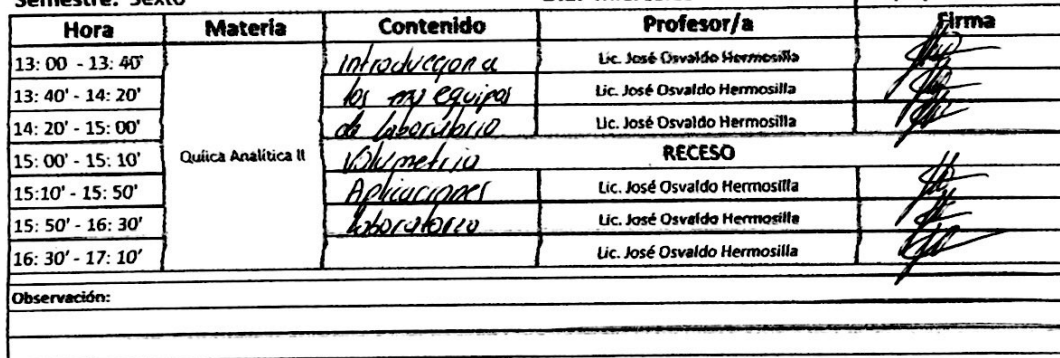 Semestre: Sexto
Hora Materia Contenido Profesor/a Firma
13: 00 - 13: 40' Introduccion a Lic. José Osvaldo Hermosilla
13: 40' - 14: 20' los equipos Lic. José Osvaldo Hermosilla
14: 20' - 15: 00' de laboratorio Lic. José Osvaldo Hermosilla
15: 00' - 15: 10' Quiica Analítica II Volumetria RECESO
15:10' - 15: 50' Aplicaciones Lic. José Osvaldo Hermosilla
15: 50' - 16: 30' laboratorio Lic. José Osvaldo Hermosilla
16: 30' - 17: 10' Lic. José Osvaldo Hermosilla
Observación: